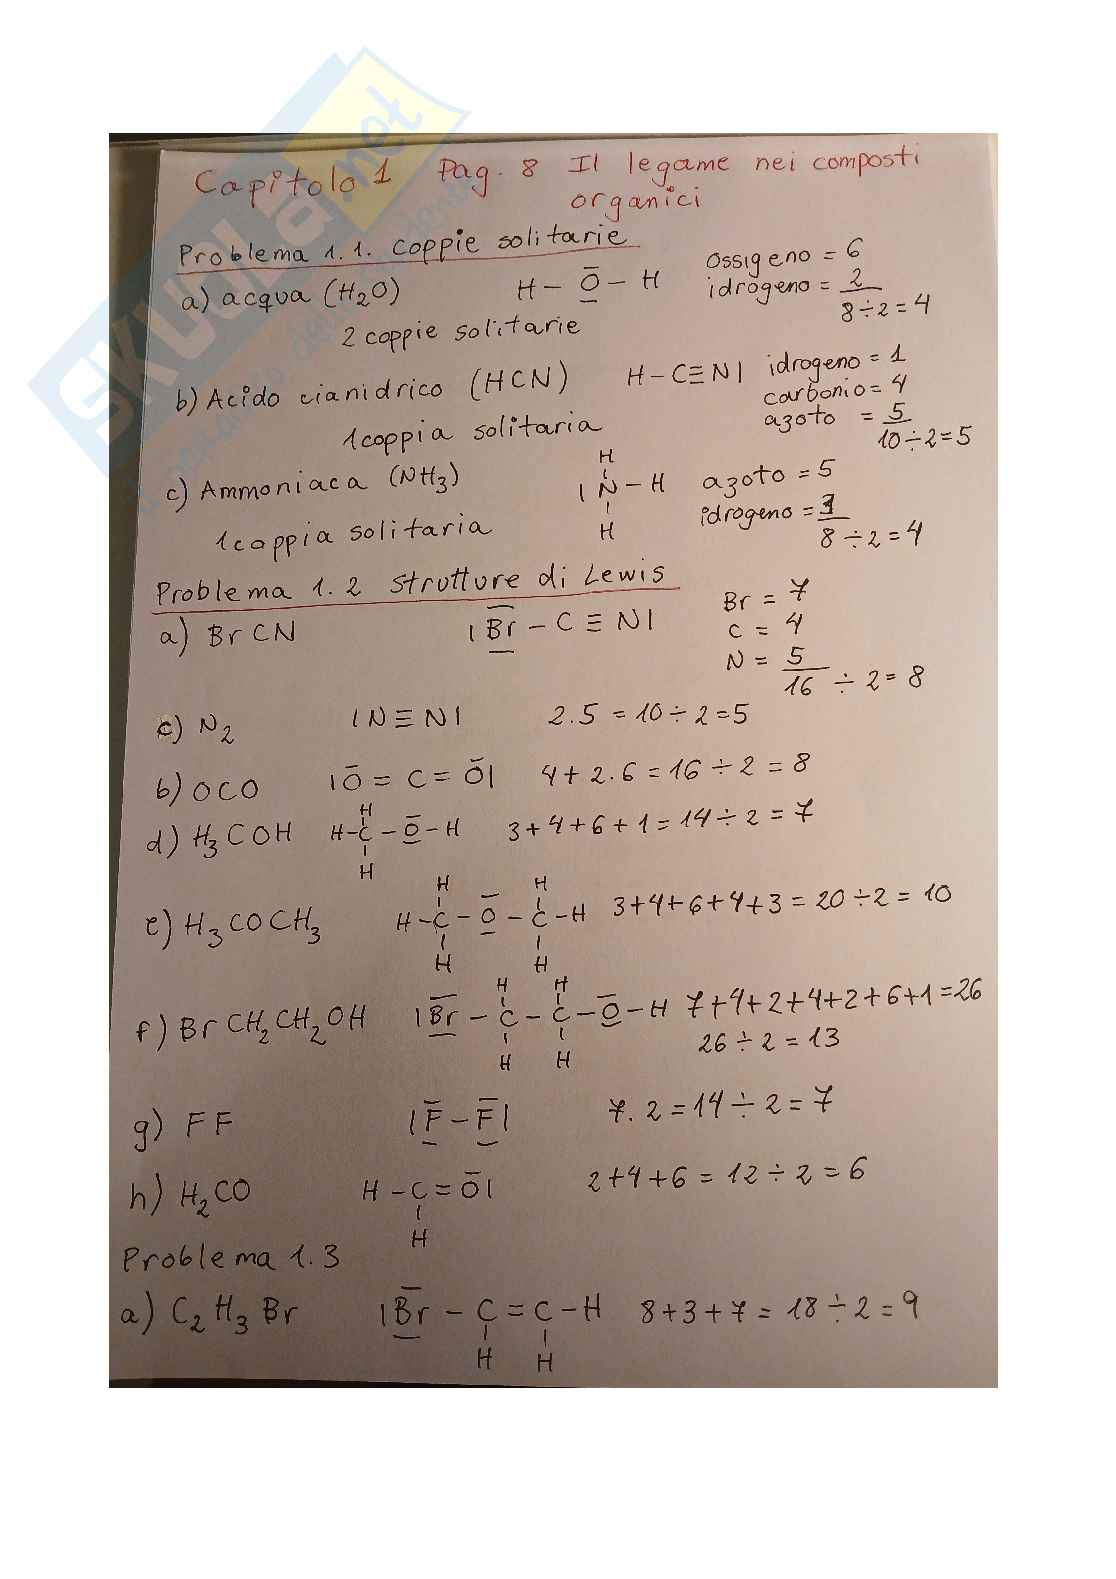 Capitolo 1 Pag. 8 Il legame nei composti
organici
Problema 1.1. coppie solitarie
a) acqua (H2O) H – O – H ossigeno = 6
idrogeno = 2
8 ÷ 2 = 4
2 coppie solitarie
b) Acido cianidrico (HCN) H – C ≡ N| idrogeno = 1
carbonio = 4
azoto = 5
10 ÷ 2 = 5
1 coppia solitaria
c) Ammoniaca (NH3) H
| N – H azoto = 5
H idrogeno = 3
8 ÷ 2 = 4
1 coppia solitaria
Problema 1.2 strutture di Lewis
a) BrCN |Br – C ≡ N| Br = 7
C = 4
N = 5
16 ÷ 2 = 8
c) N2 |N ≡ N| 2 . 5 = 10 ÷ 2 = 5
b) OCO |O = C = O| 4 + 2 . 6 = 16 ÷ 2 = 8
H
d) H3COH H – C – O – H 3 + 4 + 6 + 1 = 14 ÷ 2 = 7
H
H H
e) H3COCH3 H – C – O – C – H 3 + 4 + 6 + 4 + 3 = 20 ÷ 2 = 10
H H
H H
f) BrCH2CH2OH |Br – C – C – O – H 7 + 4 + 2 + 4 + 2 + 6 + 1 = 26
H H 26 ÷ 2 = 13
g) FF |F – F| 7 . 2 = 14 ÷ 2 = 7
h) H2CO H – C = O| 2 + 4 + 6 = 12 ÷ 2 = 6
H
Problema 1.3
a) C2H3Br |Br – C = C – H 8 + 3 + 7 = 18 ÷ 2 = 9
H H
SKUOLA.net